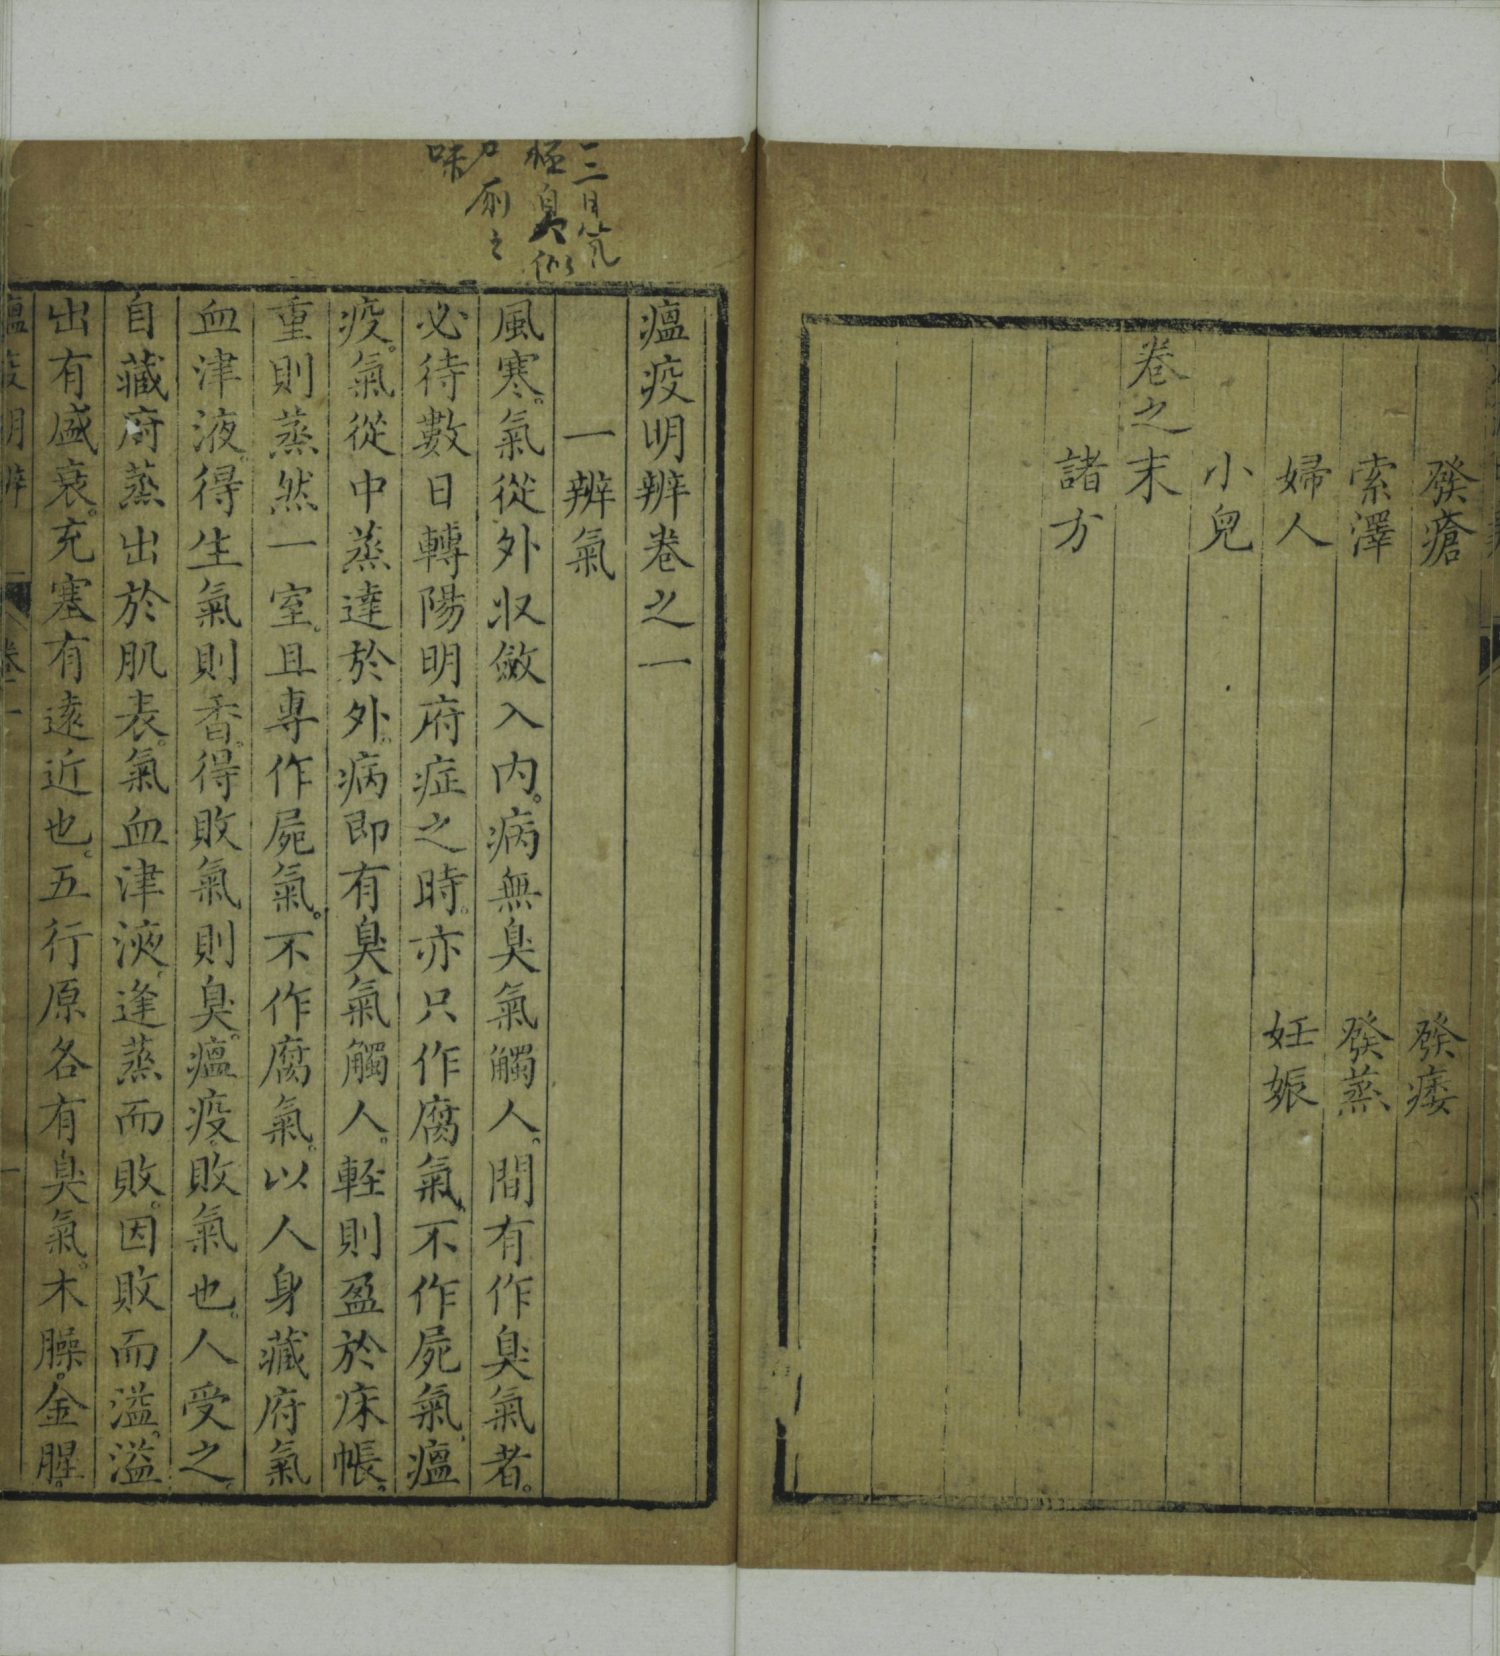 發瘡　發痿
索澤　發蒸
婦人　妊娠
小兒
卷之末
諸方
三日氣
極臭似
厠之
味
瘟疫明辨卷之一
一辨氣
風寒。氣從外収斂入內。病無臭氣觸人。間有作臭氣者。
必待數日轉陽明府症之時。亦只作腐氣、不作屍氣、瘟
疫。氣從中蒸達於外、病即有臭氣觸人。輕則盈於床帳。
重則蒸然一室。且專作屍氣。不作腐氣。以人身藏府氣
血津液得生氣則香。得敗氣則臭。瘟疫敗氣也。人受之、
自藏府蒸出於肌表。氣血津液、逢蒸而敗。因敗而溢。溢
出有盛衰。充塞有遠近也、五行原各有臭氣。木臊。金腥。
瘟疫明辨　卷一　一